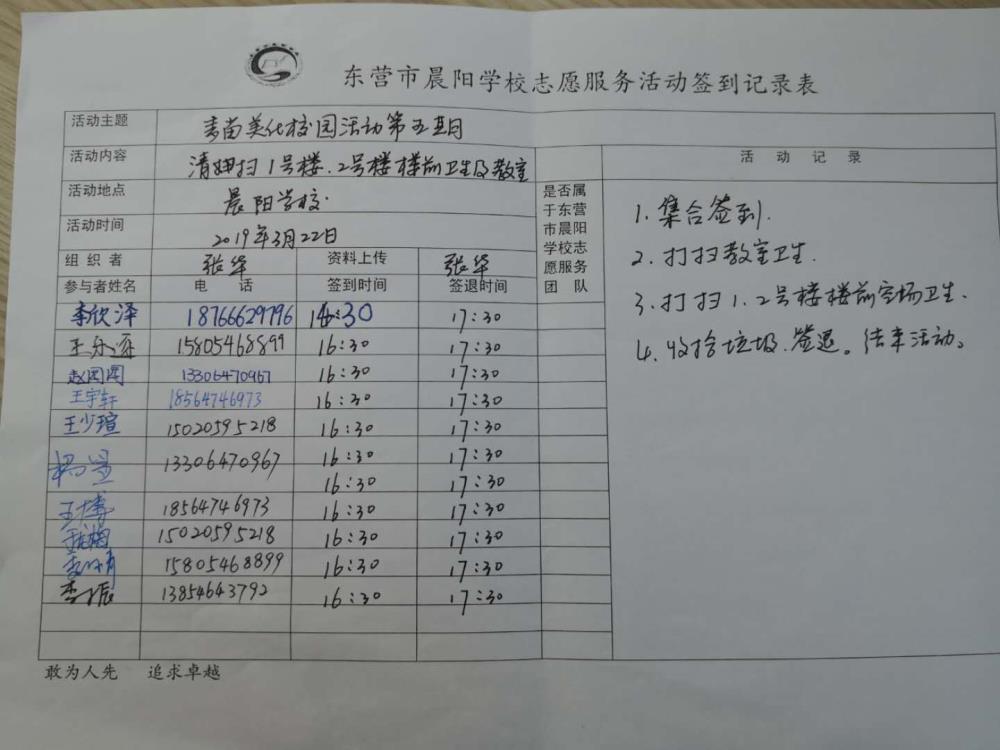 东营市晨阳学校志愿服务活动签到记录表
活动主题 青苗美化校园活动第五期
活动内容 清扫1号楼、2号楼楼前卫生及教室
活动地点 晨阳学校.
活动时间 2019年3月22日
组织者 张华 资料上传 张华
参与者姓名 电话 签到时间 签退时间
是否属于东营市晨阳学校志愿服务团队
李欣泽 18766629796 16:30 17:30
王乐 15805468899 16:30 17:30
赵团圆 13306470967 16:30 17:30
王宇轩 18564746973 16:30 17:30
王少瑄 15020595218 16:30 17:30
杨 13306470967 16:30 17:30
16:30 17:30
王博 18564746973 16:30 17:30
15020595218 16:30 17:30
15805468899 16:30 17:30
李振 13854643792 16:30 17:30
活动记录
1. 集合签到.
2. 打扫教室卫生.
3. 打扫1.2号楼楼前空场卫生.
4. 收拾垃圾.签退。结束活动。
敢为人先 追求卓越